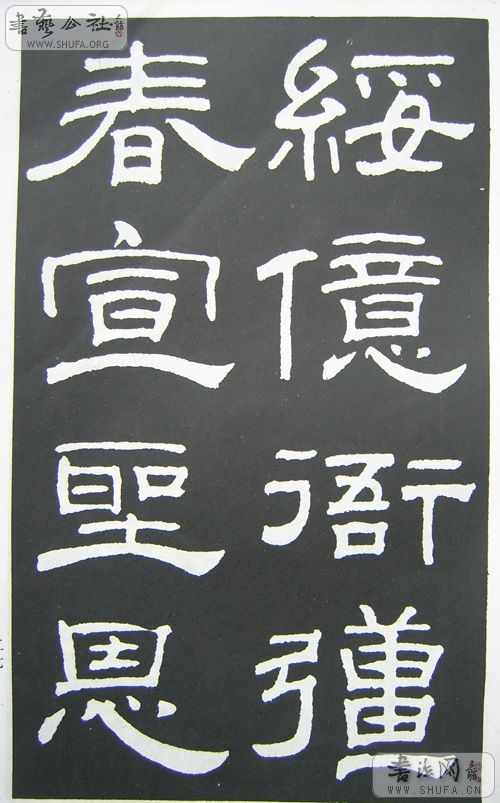 書藝公社
WWW.SHUFA.ORG
綏億衙彊
春宣聖恩
書法网
WWW.SHUFA.CN